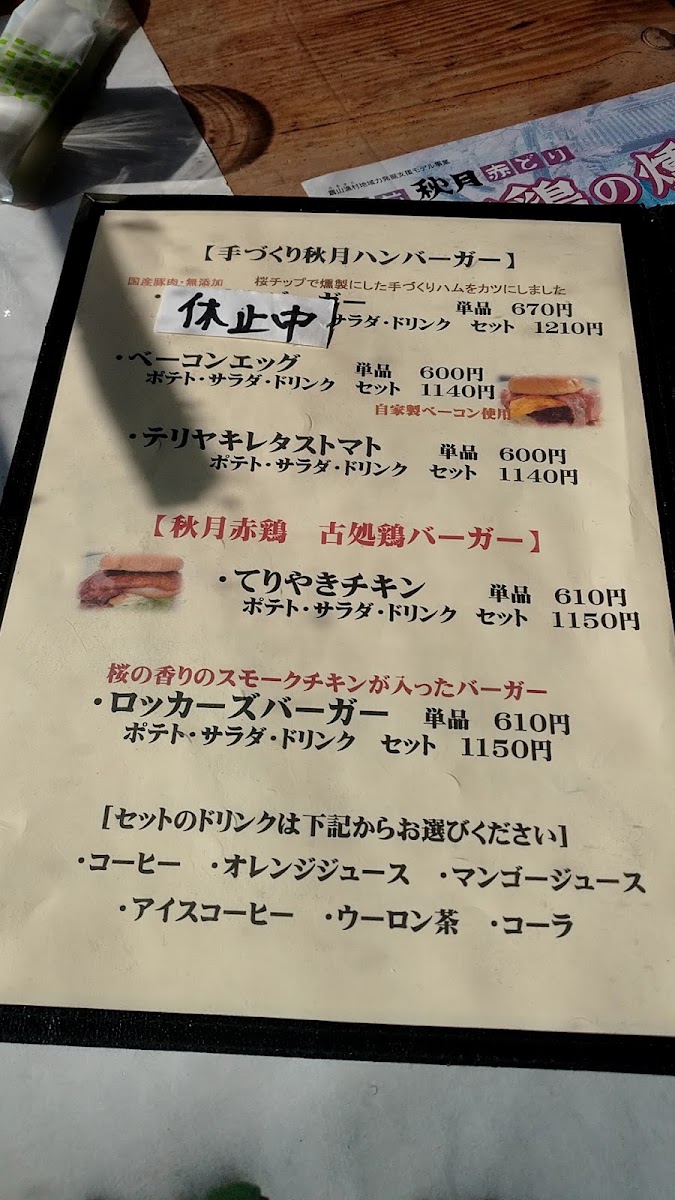 農山漁村地域力発掘支援モデル事業
秋月 赤どり
鶏の燻
【手づくり秋月ハンバーガー】
国産豚肉・無添加 桜チップで燻製にした手づくりハムをカツにしました
バーガー 単品 670円
休止中
サラダ・ドリンク セット 1210円
・ベーコンエッグ 単品 600円
ポテト・サラダ・ドリンク セット 1140円
自家製ベーコン使用
・テリヤキレタストマト 単品 600円
ポテト・サラダ・ドリンク セット 1140円
【秋月赤鶏 古処鶏バーガー】
・てりやきチキン 単品 610円
ポテト・サラダ・ドリンク セット 1150円
桜の香りのスモークチキンが入ったバーガー
・ロッカーズバーガー 単品 610円
ポテト・サラダ・ドリンク セット 1150円
[セットのドリンクは下記からお選びください]
・コーヒー ・オレンジジュース ・マンゴージュース
・アイスコーヒー ・ウーロン茶 ・コーラ